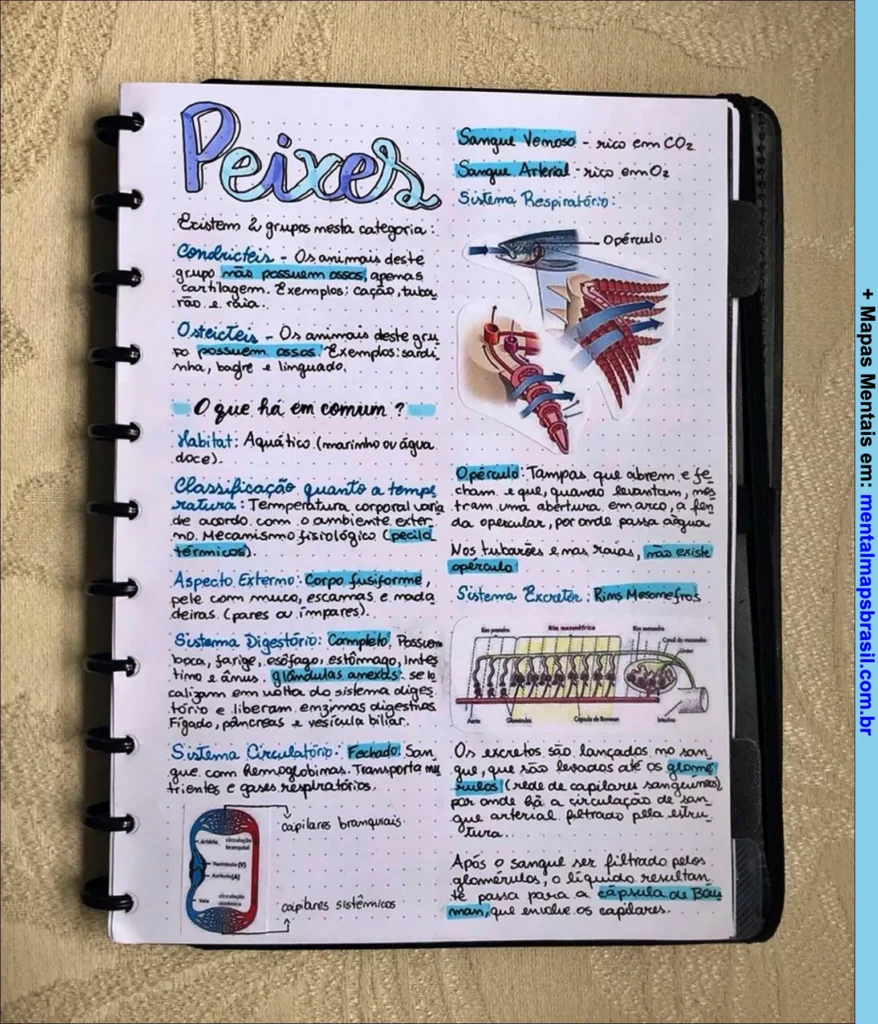 Peixes
Existem 2 grupos nesta categoria:
Condricteis - Os animais deste
grupo não possuem ossos, apenas
cartilagem. Exemplos: cação, tuba
rão e raia.
Osteicteis - Os animais deste gru
po possuem ossos. Exemplos: sardi
nha, bagre e linguado.
O que há em comum?
Habitat: Aquático (marinho ou água
doce).
Classificação quanto a tempe
ratura: Temperatura corporal varia
de acordo com o ambiente exter
no. Mecanismo fisiológico (pecilo
térmicos).
Aspecto Externo: Corpo fusiforme,
pele com muco, escamas e nada
deiras (pares ou ímpares).
Sistema Digestório: Completo. Possuem
boca, farige, esôfago, estômago, intes
tino e ânus. glândulas anexas: se lo
calizam em volta do sistema diges
tório e liberam enzimas digestivas
Fígado, pâncreas e vesícula biliar.
Sistema Circulatório: Fechado. San
gue com hemoglobinas. Transporta nu
trientes e gases respiratórios.
capilares branquiais
Artéria
circulação
branquial
Ventrículo (V)
Aurícula (A)
Veia
circulação
sistêmica
capilares sistêmicos
Sangue Venoso - rico em CO2
Sangue Arterial - rico em O2
Sistema Respiratório:
Opérculo
Opérculo: Tampas que abrem e fe_
cham e que, quando levantam, mos_
tram uma abertura em arco, a fen_
da opercular, por onde passa a água
Nos tubarões e nas raias, não existe
opérculo
Sistema Excretor: Rins Mesonefros
Rim pronefro
Rim mesonéfrico
Rim metanefro
Canal do mesonefro
Ureter
Aorta
Glomérulos
Cápsula de Bowman
Intestino
Os excretos são lançados no san_
gue, que são levados até os glomé_
rulos (rede de capilares sanguíneos)
por onde há a circulação de san_
gue arterial filtrado pela estru_
tura.
Após o sangue ser filtrado pelos
glomérulos, o líquido resultan_
te passa para a cápsula de Bow
man, que envolve os capilares.
+ Mapas Mentais em: mentalmapsbrasil.com.br